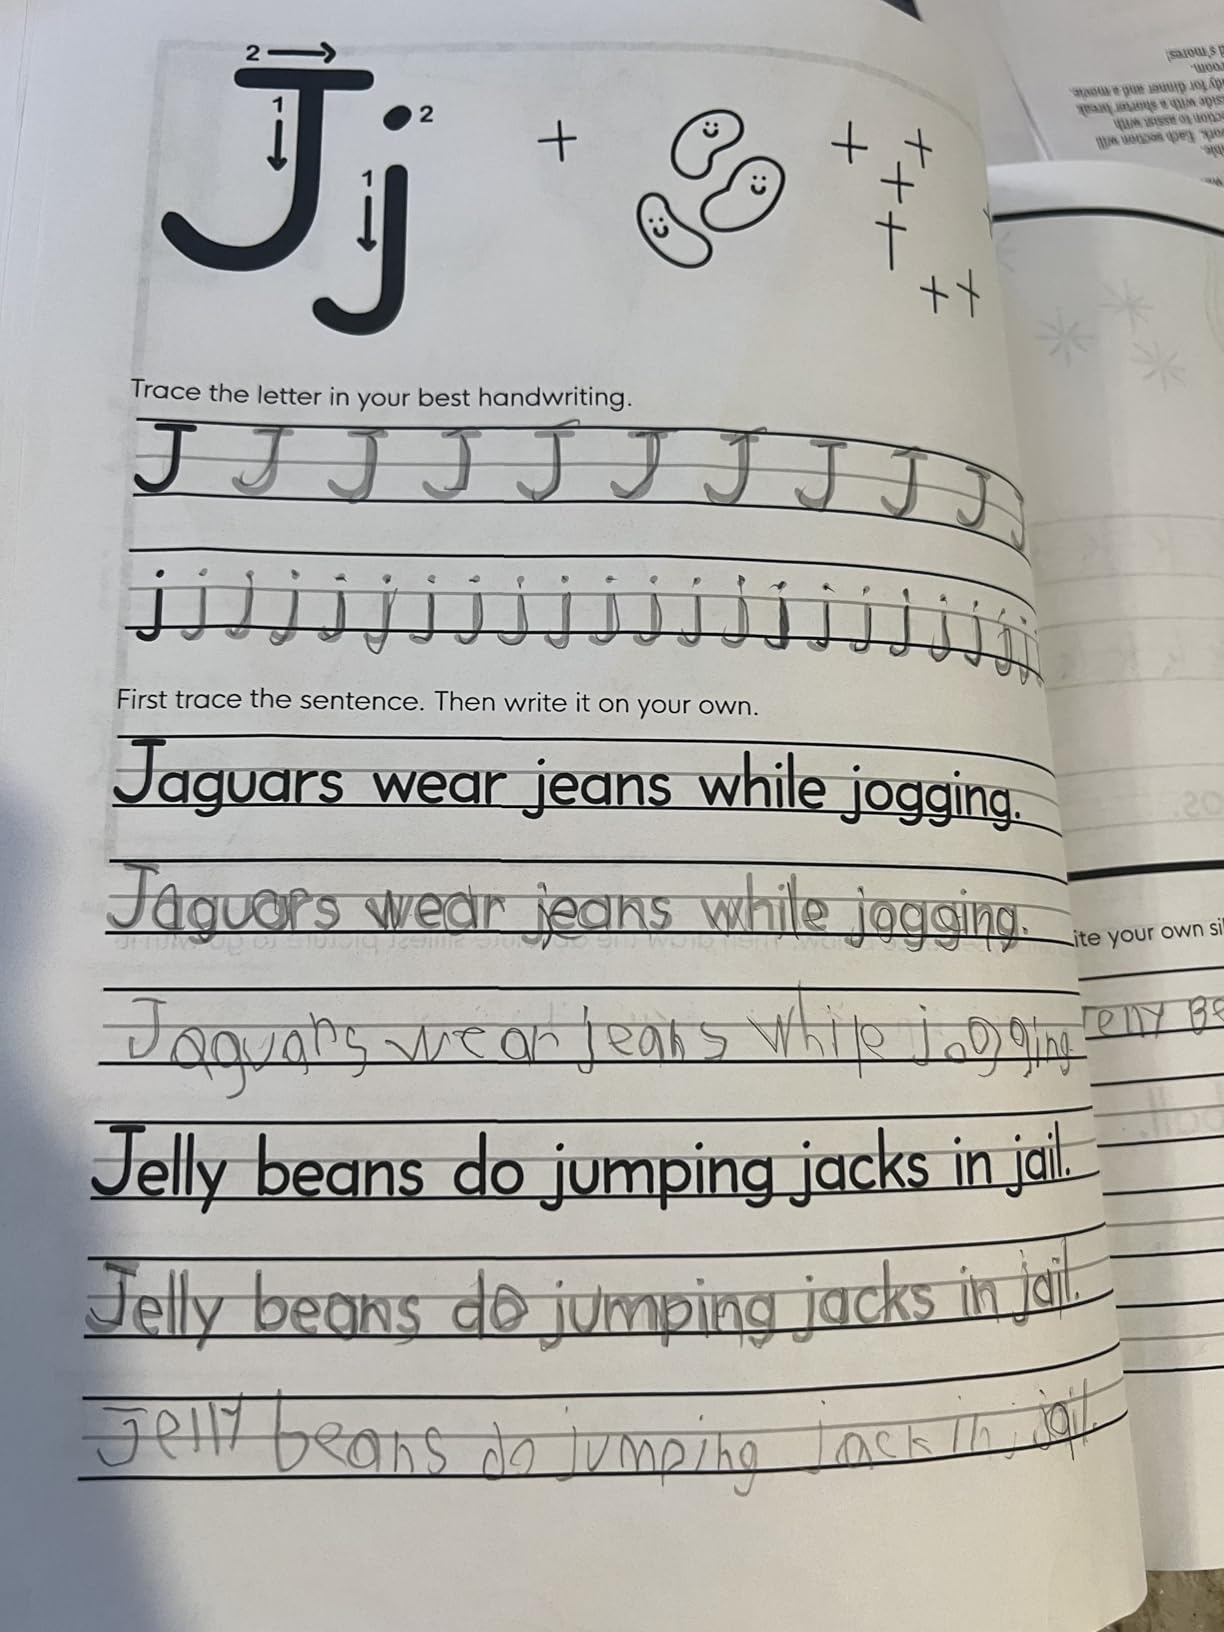 2
1
J j
2
1
Trace the letter in your best handwriting.
J J J J J J J J J J J
j j j j j j j j j j j j j j j j j j j j j j
First trace the sentence. Then write it on your own.
Jaguars wear jeans while jogging.
Jaguars wear jeans while jogging.
Jaguars wear jeans while jogging
Jelly beans do jumping jacks in jail.
Jelly beans do jumping jacks in jail.
Jelly beans do jumping jack in jail.
ite your own si